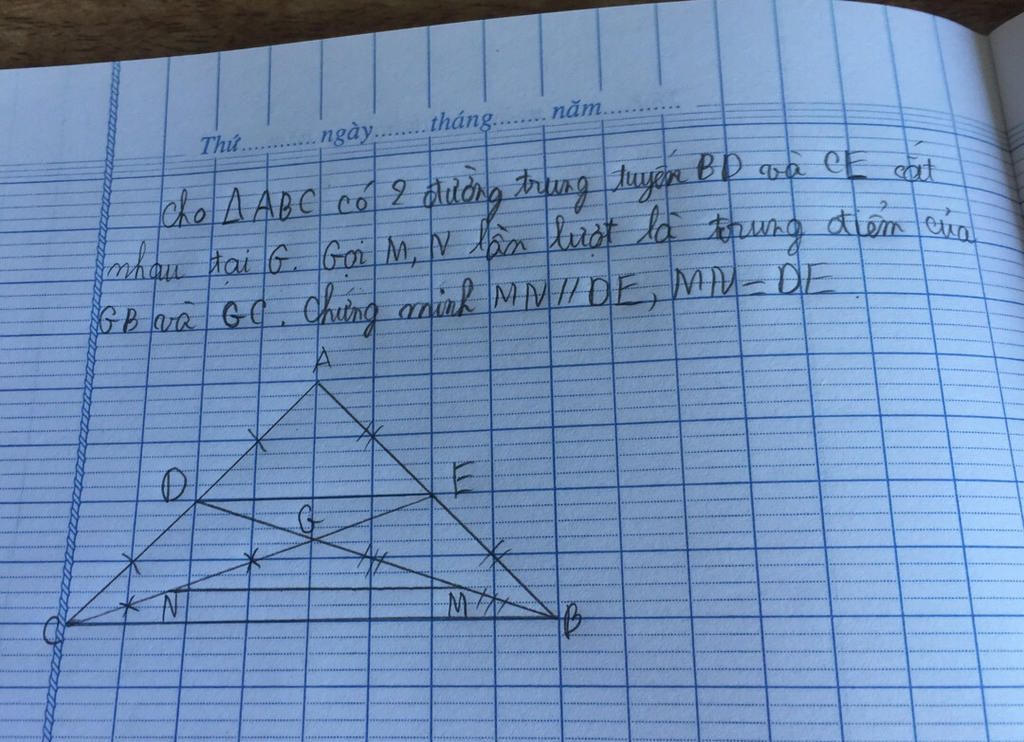 Thứ............ngày........tháng........năm............
Cho ΔABC có 2 đường trung tuyến BD và CE cắt
nhau tại G. Gọi M, N lần lượt là trung điểm của
GB và GC. Chứng minh MN // DE, MN = DE.
A
D E
G
N M
C B